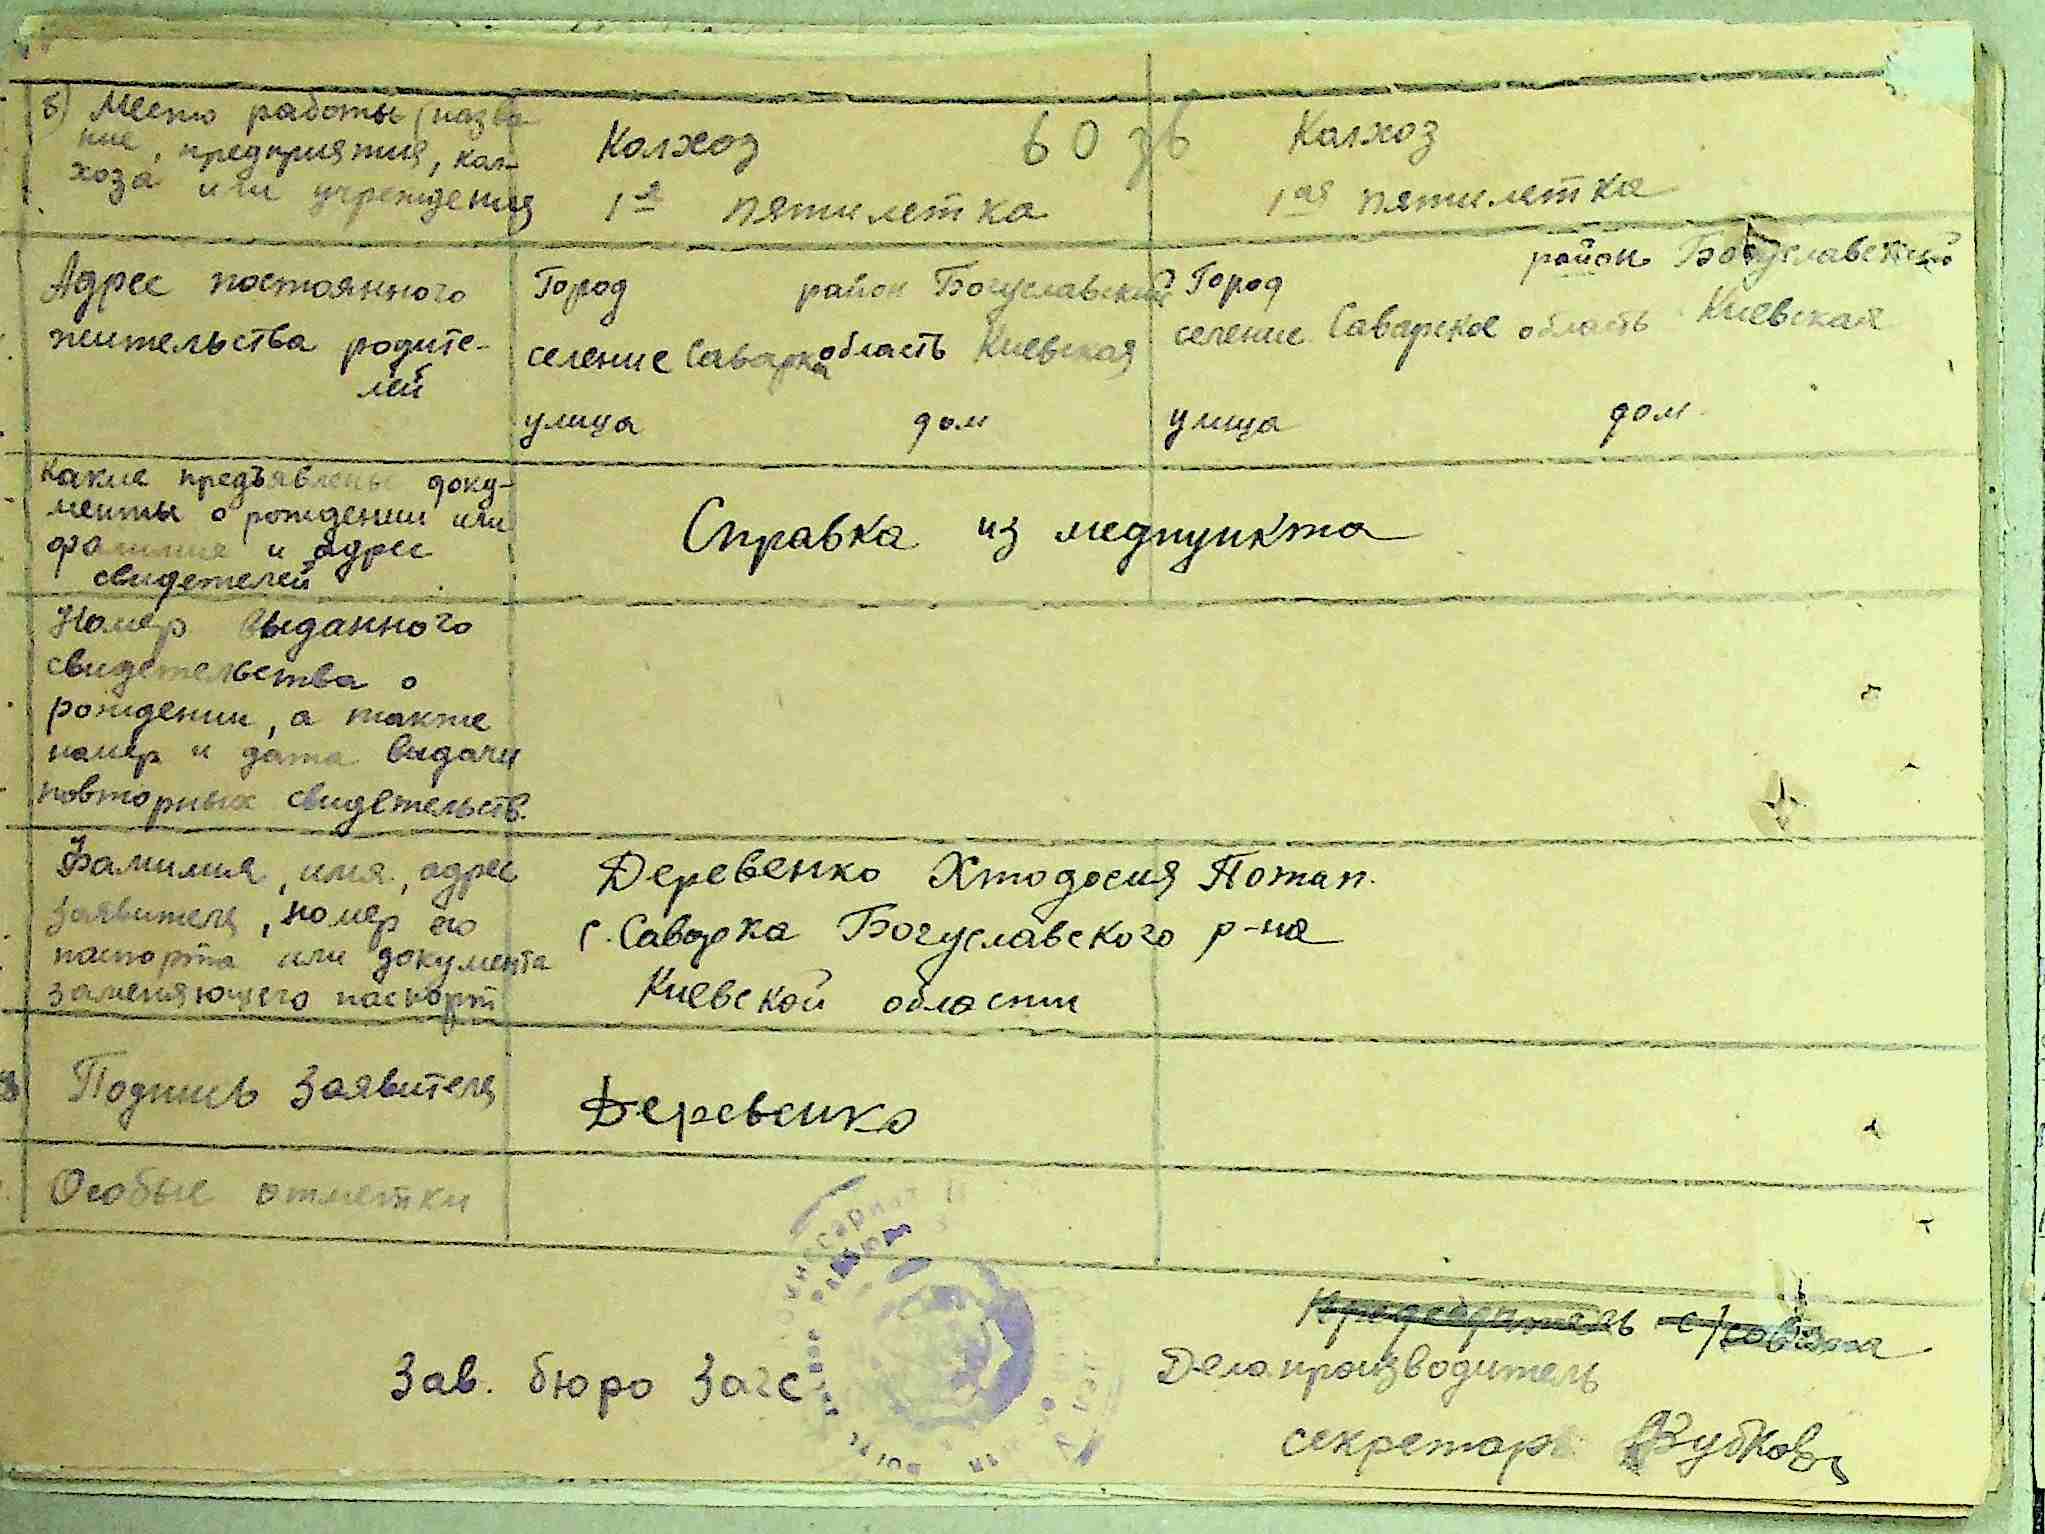 б) Место работы (назва-
ние, предприятия, кол-
хоза или учреждения
Колхоз
1я пятилетка
Колхоз
1ая пятилетка
Адрес постоянного
жительства родите-
лей
Город район Богуславский
селение Саварка область Киевская
улица дом
Город район Богуславский
селение Саварское область Киевская
улица дом
Какие предъявлены доку-
менты о рождении или
фамилия и адрес
свидетелей
Справка из медпункта
Номер выданного
свидетельства о
рождении, а также
номер и дата выдачи
повторных свидетельств.
Фамилия, имя, адрес
заявителя, номер его
паспорта или документа
заменяющего паспорт
Деревенко Хтодосия Потап.
с. Саварка Богуславского р-на
Киевской области
Подпись Заявителя
Деревенко
Особые отметки
Зав. бюро Загс
Председатель с/совета
Делапроизводитель
секретарь Зубков